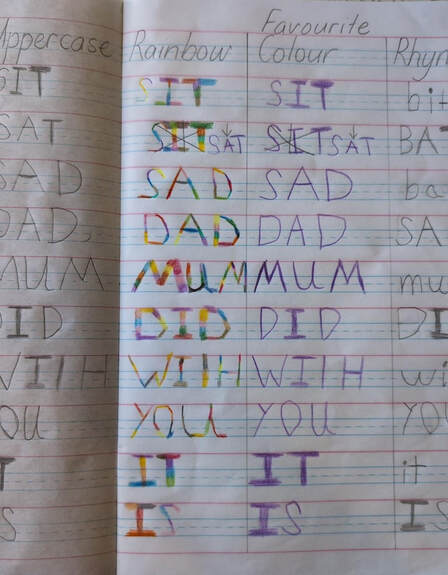 Favourite
Uppercase Rainbow Colour Rhym
SIT SIT SIT bit
SAT SIT SAT SIT SAT BAT
SAD SAD SAD ba
DAD, DAD DAD SA
MUM MUM MUM mu
DID DID DID DI
WITH WITH WITH wi
OU YOU YOU YO
T IT IT it
S IS IS IS